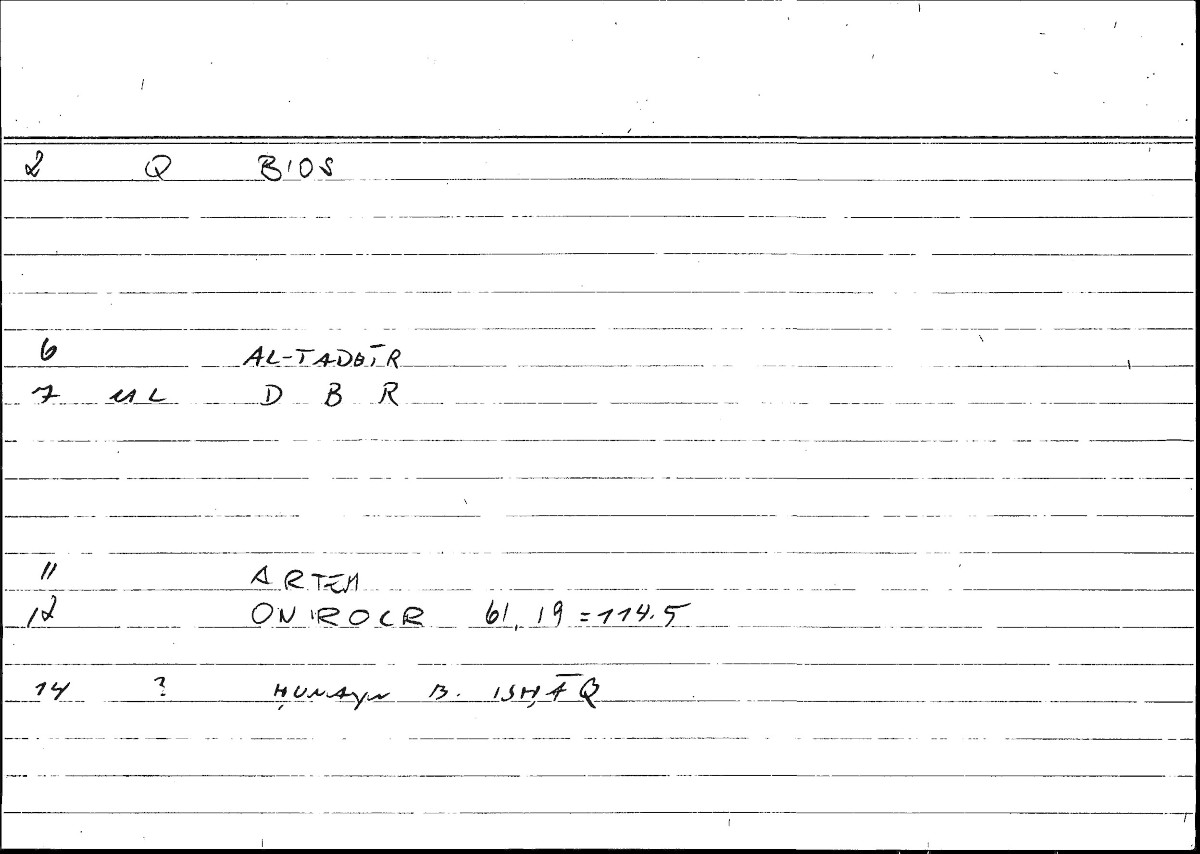 2 Q BIOS
6 AL-TADBĪR
7 ML D B R
11 ARTEM
12 ONIROCR 61, 19 = 114.5
14 ? ḤUNAYN B. ISḤĀQ